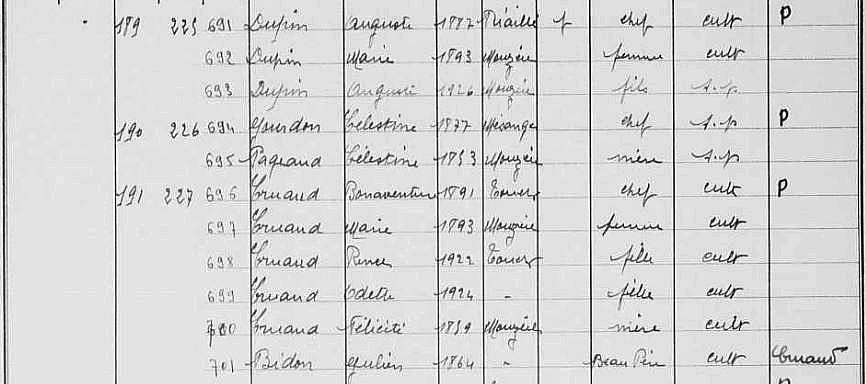 189 225 691 Dupin Auguste 1887 Riaillé f chef cult P
692 Dupin Marie 1893 Mouzeil femme cult
693 Dupin Auguste 1926 Mouzeil fils s.p
190 226 694 Gourdon Célestine 1877 Mésanger chef s.p P
695 Pageaud Célestine 1853 Mouzeil mère s.p
191 227 696 Bonaventure 1891 chef cult P
697 Marie 1893 Mouzeil femme cult
698 Renée 1922 fille cult
699 Odette 1924 - fille cult
700 Félicité 1859 Mouzeil mère cult
701 Bidon Julien 1864 - Beau Père cult